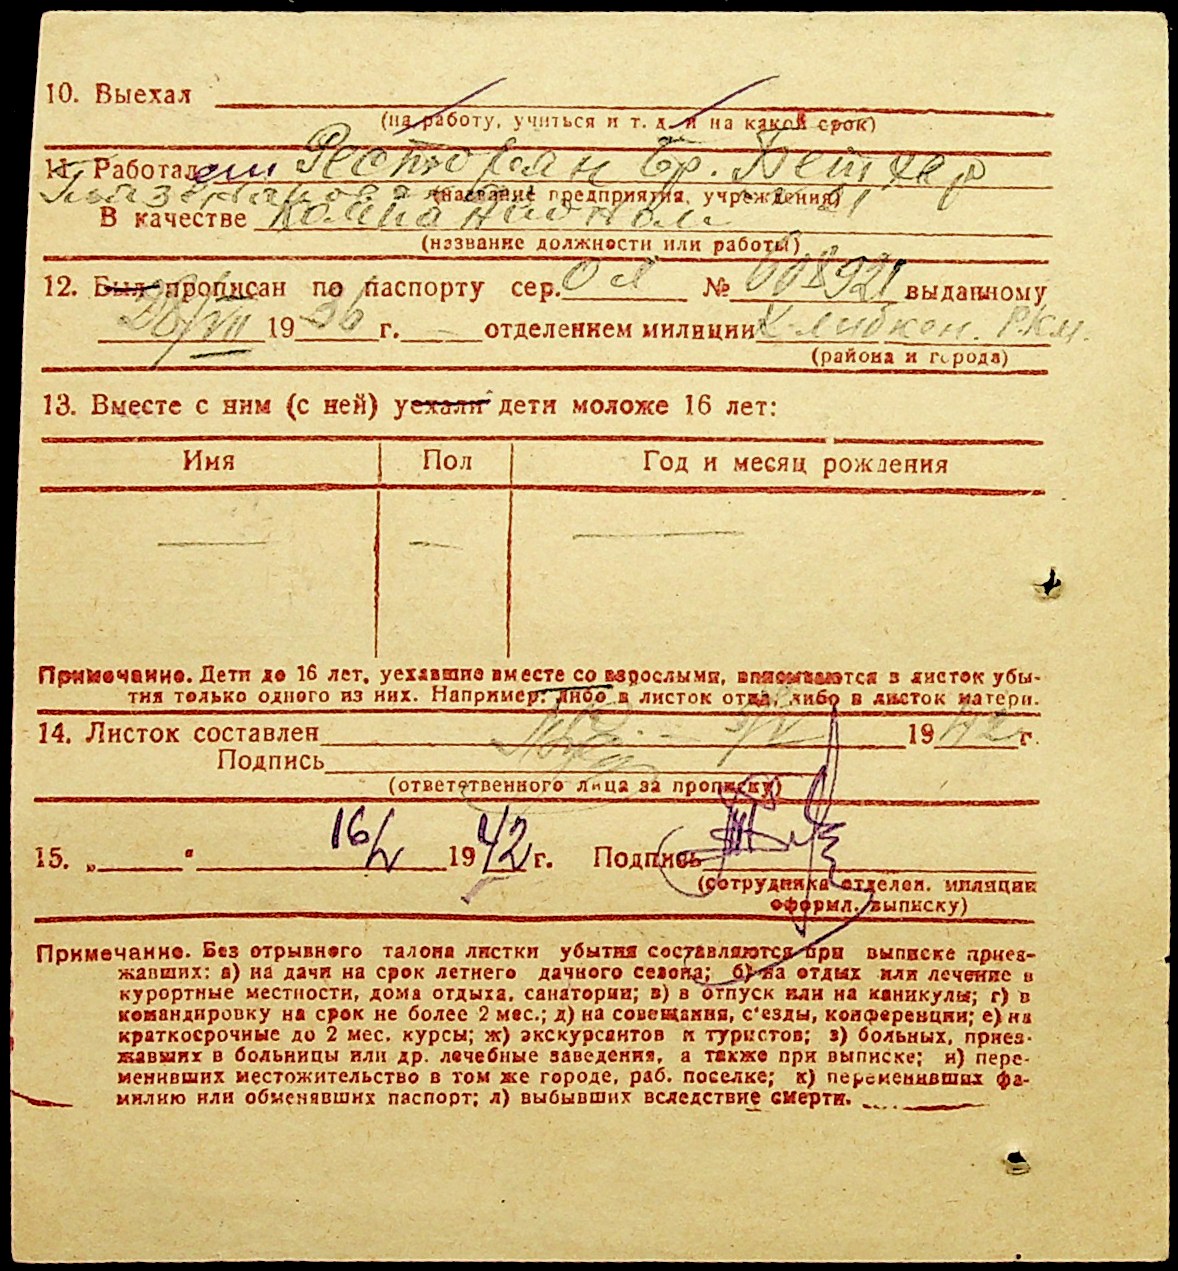 10. Выехал
(на работу, учиться и т. д. и на какой срок)
11. Работал Ресторан бр.
(название предприятия, учреждения) 21
В качестве компанионом
(название должности или работы)
12. Был прописан по паспорту сер. ОЛ № 608921 выданному
28/VII 1936 г. отделением милиции РКМ.
(района и города)
13. Вместе с ним (с ней) уехали дети моложе 16 лет:
Имя Пол Год и месяц рождения
— — —
Примечание. Дети до 16 лет, уехавшие вместе со взрослыми, вписываются в листок убы-
тия только одного из них. Например: либо в листок отца, либо в листок матери.
14. Листок составлен 5/V 1942 г.
Подпись
(ответственного лица за прописку)
15. „ “ 16/V 1942 г. Подпись
(сотрудника отделен. милиции
оформл. выписку)
Примечание. Без отрывного талона листки убытия составляются при выписке приез-
жавших: а) на дачи на срок летнего дачного сезона; б) на отдых или лечение в
курортные местности, дома отдыха, санатории; в) в отпуск или на каникулы; г) в
командировку на срок не более 2 мес.; д) на совещания, с'езды, конференции; е) на
краткосрочные до 2 мес. курсы; ж) экскурсантов и туристов; з) больных, приез-
жавших в больницы или др. лечебные заведения, а также при выписке; и) пере-
менивших местожительство в том же городе, раб. поселке; к) переменивших фа-
милию или обменявших паспорт; л) выбывших вследствие смерти.